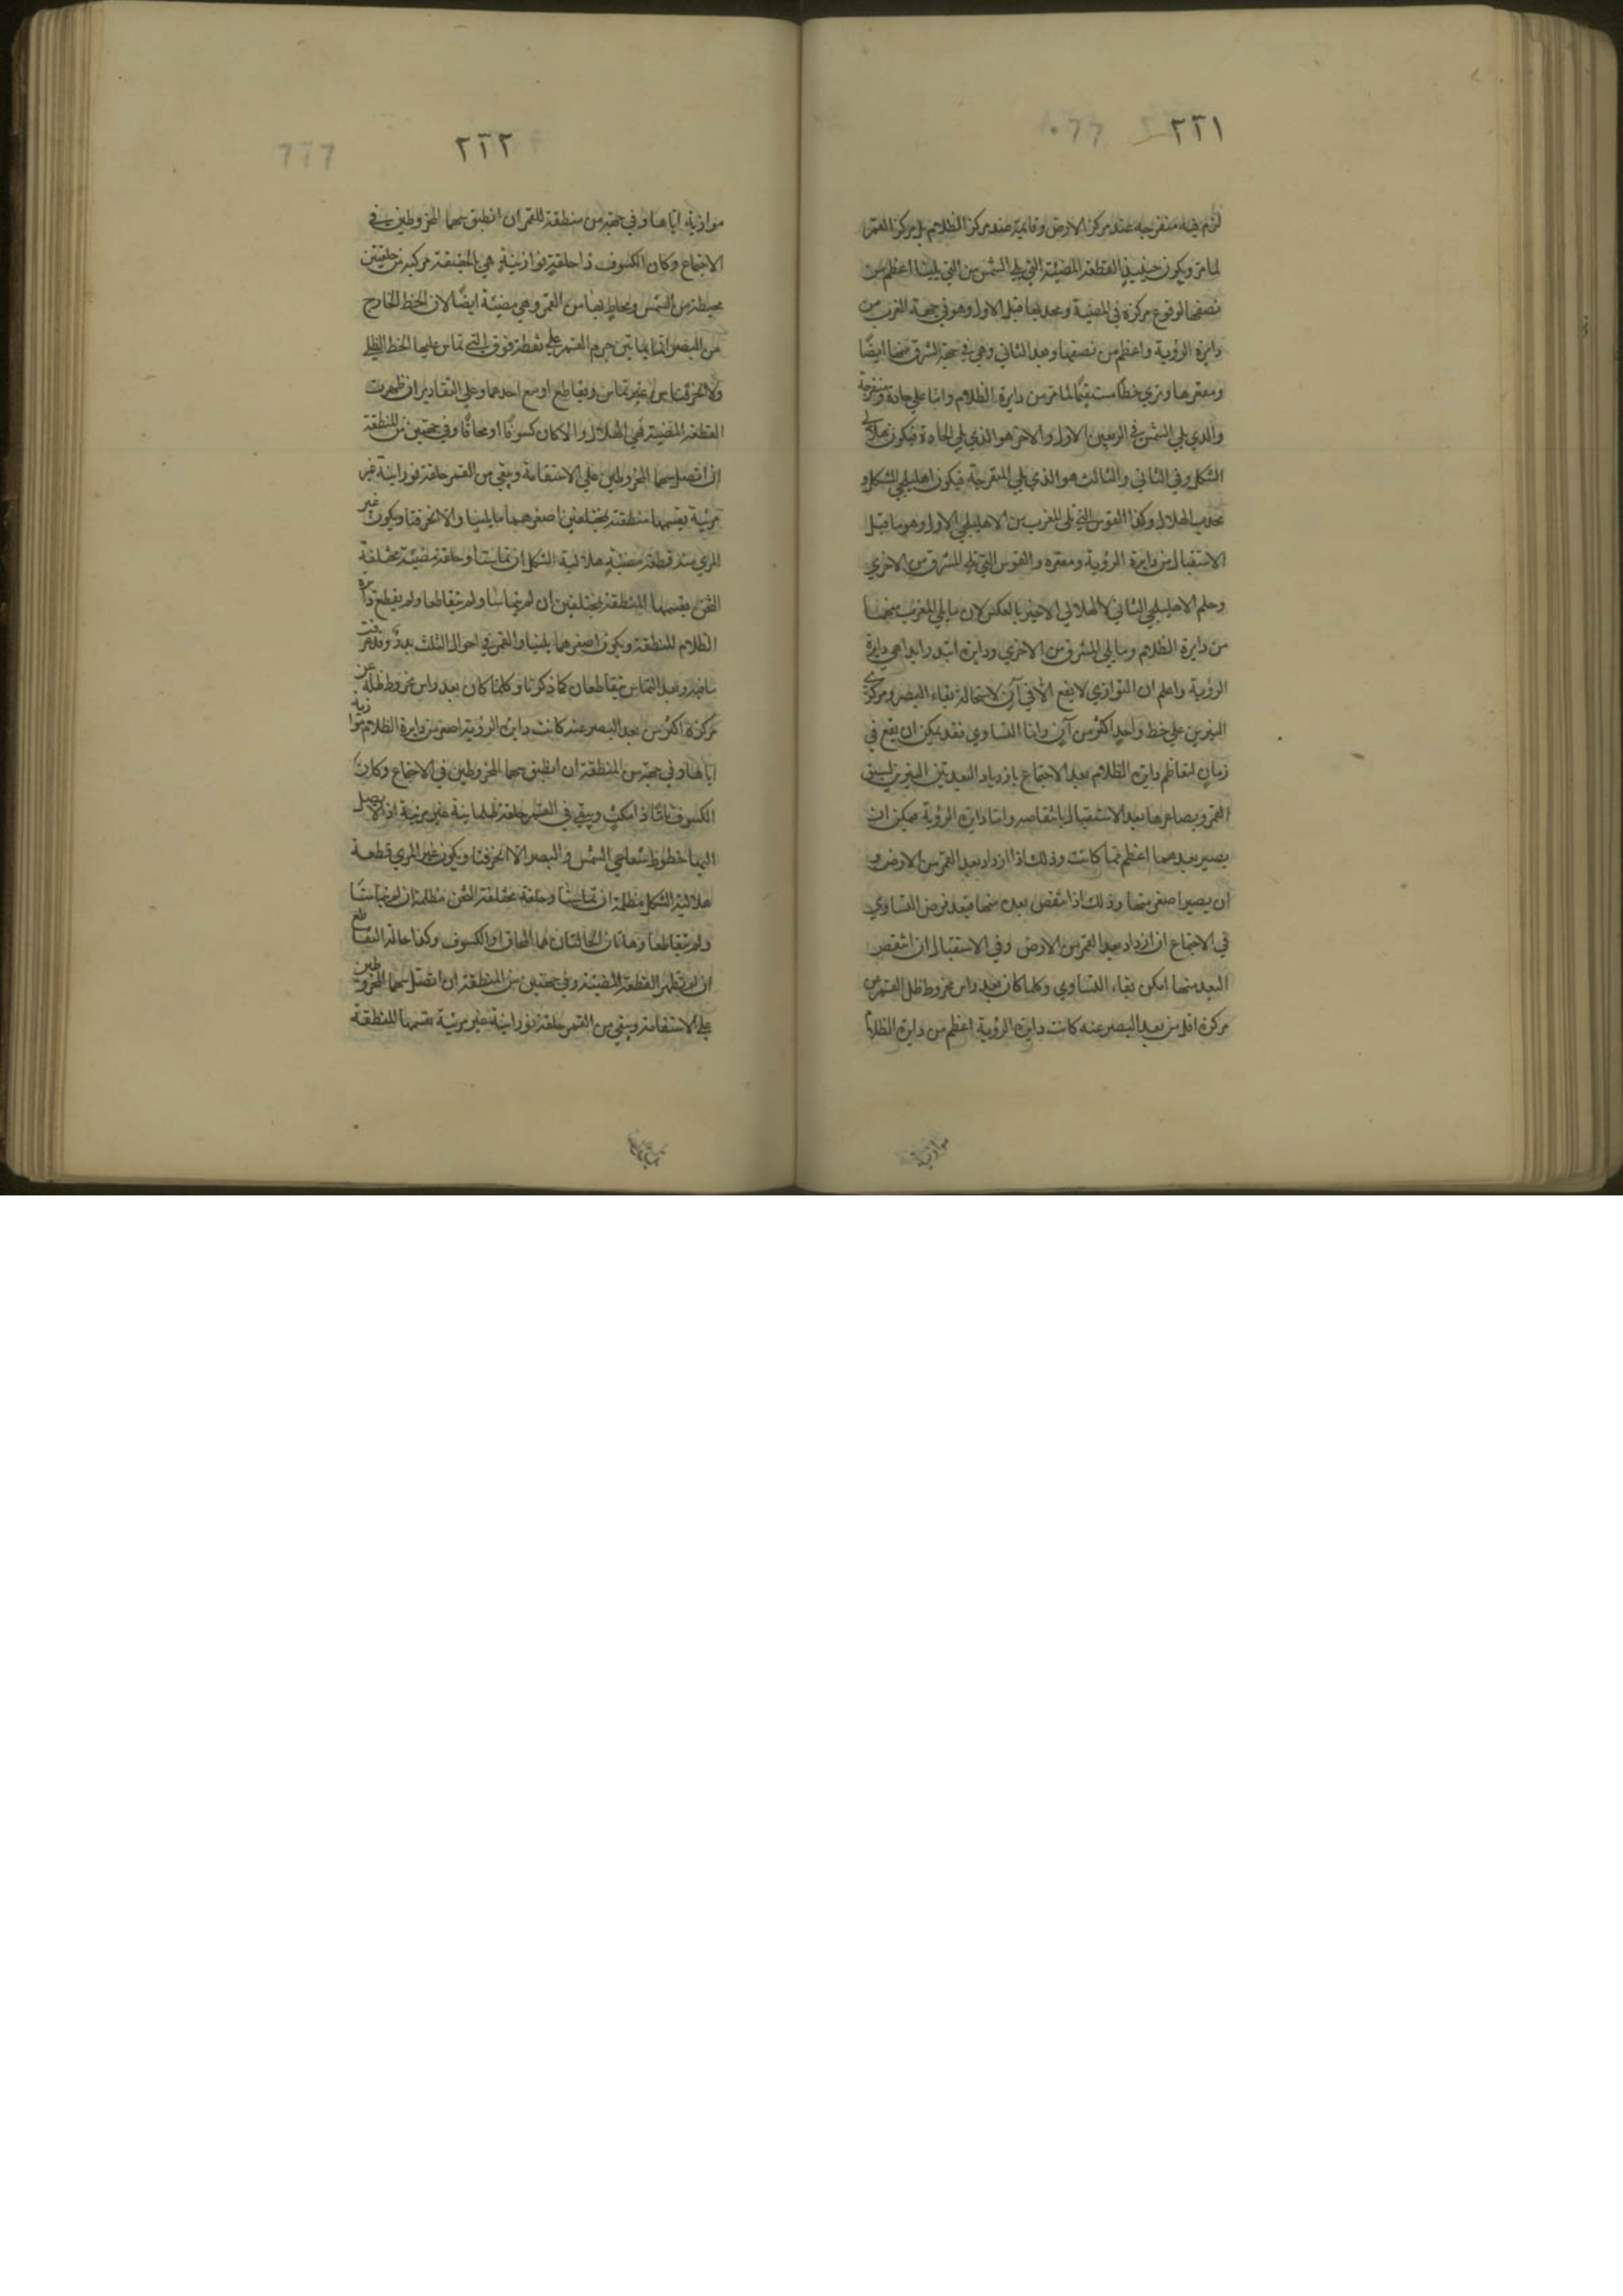 ٢٦١
لزم فيه منفرجة عند مركز الارض وقائمة عند مركز الظلام بل مركز القمر
لما مر ويكون حينئذ القطعة المضيئة التي يلي الشمس من التي يلينا اعظم من
نصفها لوقوع مركزه في المضيئة ومحدبها قبل الاول وهو في جهة الغرب من
دايرة الروية واعظم من نصفها وبعد الثاني وهي في جهة الشرق منها ايضا
ومقعرها وتري خطا مستقيما لما مر من دايرة الظلام واما علي حادة ومنفرجة
والذي يلي الشمس في الربعين الاول والاخر هو الذي يلي الحادة فيكون هلالي
الشكل وفي الثاني والثالث هو الذي يلي المنفرجة فيكون اهليلجي الشكل و
محدب الهلال وكذا القوس التي تلي المغرب من الاهليلجي الاول وهو ما قبل
الاستقبال من دايرة الروية ومقعره والقوس التي يلي المشرق من الاخري
وحكم الاهليلجي الثاني والهلالي الاخير بالعكس لان ما يلي المغرب منهما
من دايرة الظلام وما يلي المشرق من الاخري ودايرة ابتد رايدا هي دايرة
الروية واعلم ان التوازي لا يقع الا في آن لاستحالة بقاء البصر ومركزي
النيرين علي خط واحد اكثر من آن واما التساوي فقد يمكن ان يقع في
زمان لتعاظم دايرة الظلام بعد الاجتماع بازدياد البعد بين النيرين
القمر وبصاعرها بعد الاستقبال بانتقاصه واما دايرة الروية فيمكن ان
يصير بعدهما اعظم مما كانت وذلك اذا ازداد بعد القمر من الارض و
ان يصير اصغر منها وذلك اذا انتقص بعده منها فبعد فرض التساوي
في الاجتماع ان ازداد بعد القمر من الارض وفي الاستقبال ان انتقص
البعد منها امكن بقاء التساوي وكلما كان بعد راس مخروط ظل القمر من
مركزه اقل من بعد البصر عنه كانت دايرة الروية اعظم من دايرة الظلام
موازية
٢٦٢
موازية اياها وفي جهة من منطقة للقمر ان انطبق سهما المخروطين في
الاجتماع وكان الكسوف ذا حلقة نورانية هي بالحقيقة مركبة من حلقتين
محيطة من الشمس ومحاط بها من القمر وهي مضيئة ايضا لان الخط الخارج
من البصر انما يماس جرم القمر علي نقطة فوق التي تماس عليها الخط الظلي
والا انحرفتا من غير تماس وتقاطع اوسع احدهما وعلي التقادير ان ظهرت
القطعة المضيئة فهي الهلال والا كان كسوفا او محاقا وفي جهتين من المنطقة
ان اتصل سهما المخروطين علي الاستقامة ويبقي من القمر حلقة نورانية غير
مرئية يقسمها منطقة بمختلفين اصغرهما ما يلينا والا انحرفتا ويكون غير
المري منه قطعة مضيئة هلالية الشكل ان تماستا وحلقة مضيئة مختلفة
الثخن يقسمها المنطقة بمختلفين ان لم يتماسا ولم يتقاطعا ولم يقطع دايرة
الظلام المنطقة ويكون اصغرهما يلينا والقمر في احوال الثلث بدر وقد عرفت
ما فيه وبعد التماس يتقاطعان كما ذكرنا وكلما كان بعد راس مخروط ظله عن
مركزه اكثر من بعد البصر عنه كانت دايرة الروية اصغر من دايرة الظلام موازية
اياها وفي جهة من المنطقة ان انطبق سهما المخروطين في الاجتماع وكان
الكسوف تاما ذا مكث ويبقي في القمر حلقة ظلمانية غير مرئية اذ لا يصل
اليها خطوط شعاعي الشمس والبصر والا انحرفتا ويكون غير المري قطعة
هلالية الشكل مظلمة ان تماستا وحلقة مختلفة الثخن مظلمة ان لم يتماستا
ولم يتقاطعا وهاتان الحالتان هما المحاق او الكسوف وكذا حالة التقاطع
ان لم تظهر القطعة المضيئة وفي جهتين من المنطقة ان اتصل سهما المخروطين
علي الاستقامة ويبقي من القمر حلقة نورانية غير مرئية يقسمها المنطقة